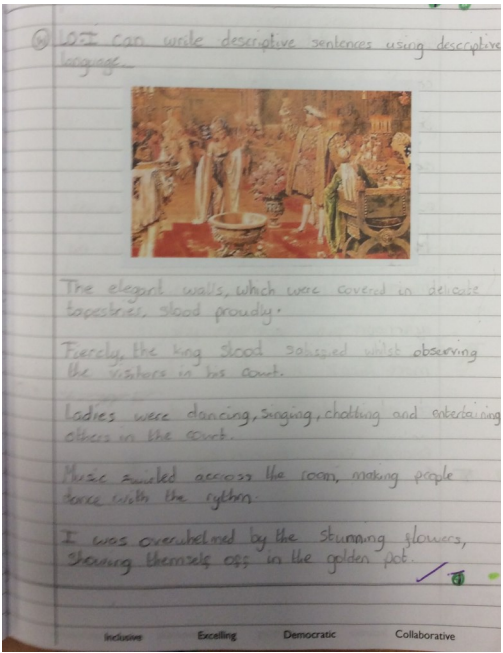 LO:I can write descriptive sentences using descriptive
language
The elegant walls, which were covered in delicate
tapestries, stood proudly.
Fiercly, the king stood satisfied whilst observing
the visitors in his court.
Ladies were dancing, singing, chatting and entertaining
others in the court.
Music across the room, making people
dance with the rythm.
I was overwhelmed by the stunning flowers,
showing themself off in the golden pot.
Inclusive Excelling Democratic Collaborative